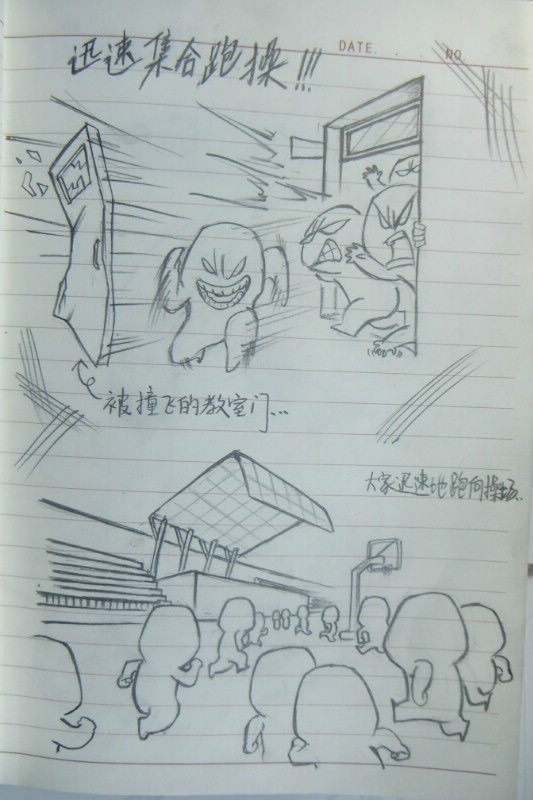 DATE. NO.
迅速集合跑操!!!
被撞飞的教室门...
大家迅速地跑向操场.